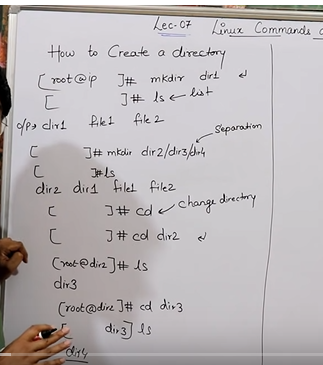 Lec-07 Linux Commands
How to Create a directory
[root@ip ]# mkdir dir1 ↲
[ ]# ls ← list
o/p→ dir1 file1 file2
separation
[ ]# mkdir dir2/dir3/dir4
[ ]#ls
dir2 dir1 file1 file2
[ ]# cd ↙ change directory
[ ]# cd dir2 ↲
[root@dir2]# ls
dir3
[root@dir2]# cd dir3
[ dir3] ls
dir4